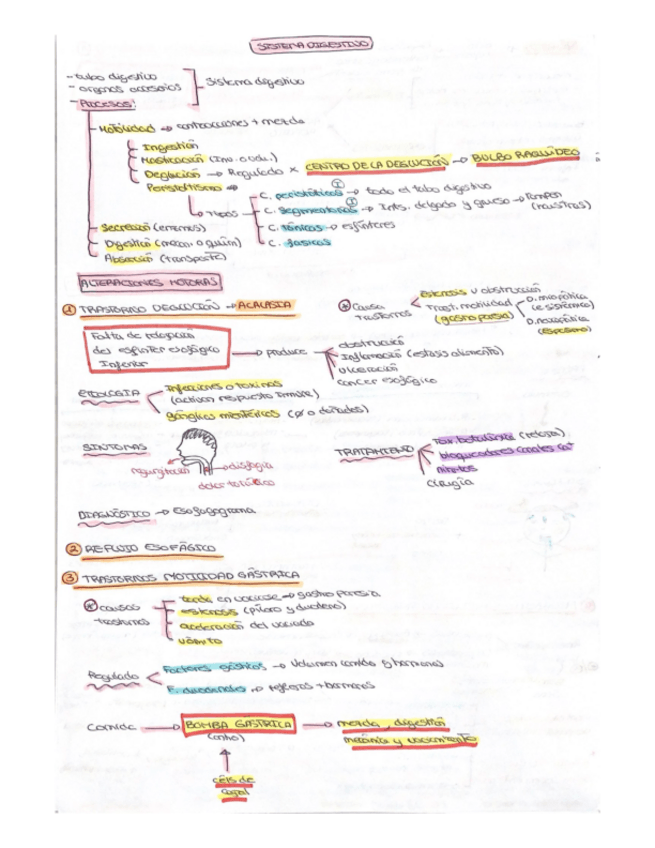 SISTEMA DIGESTIVO
- tubo digestivo
- organos accesorios
Sistema digestivo
- PROCESOS:
Motilidad → contracciones + mezcla
Ingestión
Masticación (inv. o vol.)
Deglución → Regulado x CENTRO DE LA DEGLUCIÓN → BULBO RAQUÍDEO
Peristaltismo ⇒
Tipos
C. peristálticas → todo el tubo digestivo
C. Segmentarias → Ints. delgado y grueso → rompen
C. tónicas → esfínteres
C. fásicas
Secreción (enzimas)
Digestión (mecan. o quím)
Absorción (transporte)
ALTERACIONES MOTORAS
① TRASTORNO DEGLUCIÓN → ACALASIA
Causa
trastornos
estenosis u obstrucción
Trast. motilidad
(gastroparesia)
D. miopática
(e sistémica)
D. neuropática
Falta de relajación
del esfínter esofágico
Inferior
→ produce
obstrucción
Inflamación (estasis alimento)
ulceración
cancer esofágico
ETIOLOGIA
Infecciones o toxinas
(activan respuesta inmune)
gánglios mientéricos (ø o dañados)
SINTOMAS
regurgitación
disfagia
dolor torácico
TRATAMIENTO
Tox. botulínica (relaja)
bloqueadores canales Ca²⁺
nitritos
cirugía
DIAGNÓSTICO → Esofagograma
② REFLUJO ESOFÁGICO
③ TRASTORNOS MOTILIDAD GÁSTRICA
causas
trastornos
tarda en vaciarse → gastroparesia
estenosis (píloro y duodeno)
aceleración del vaciado
vómito
Regulado
Factores gástricos → Volumen comida y hormonas
F. duodenales → reflejos + hormonas
Comida → BOMBA GÁSTRICA → mezcla, digestión
(antro)
mecánica y vaciamiento
céls de
Cajal